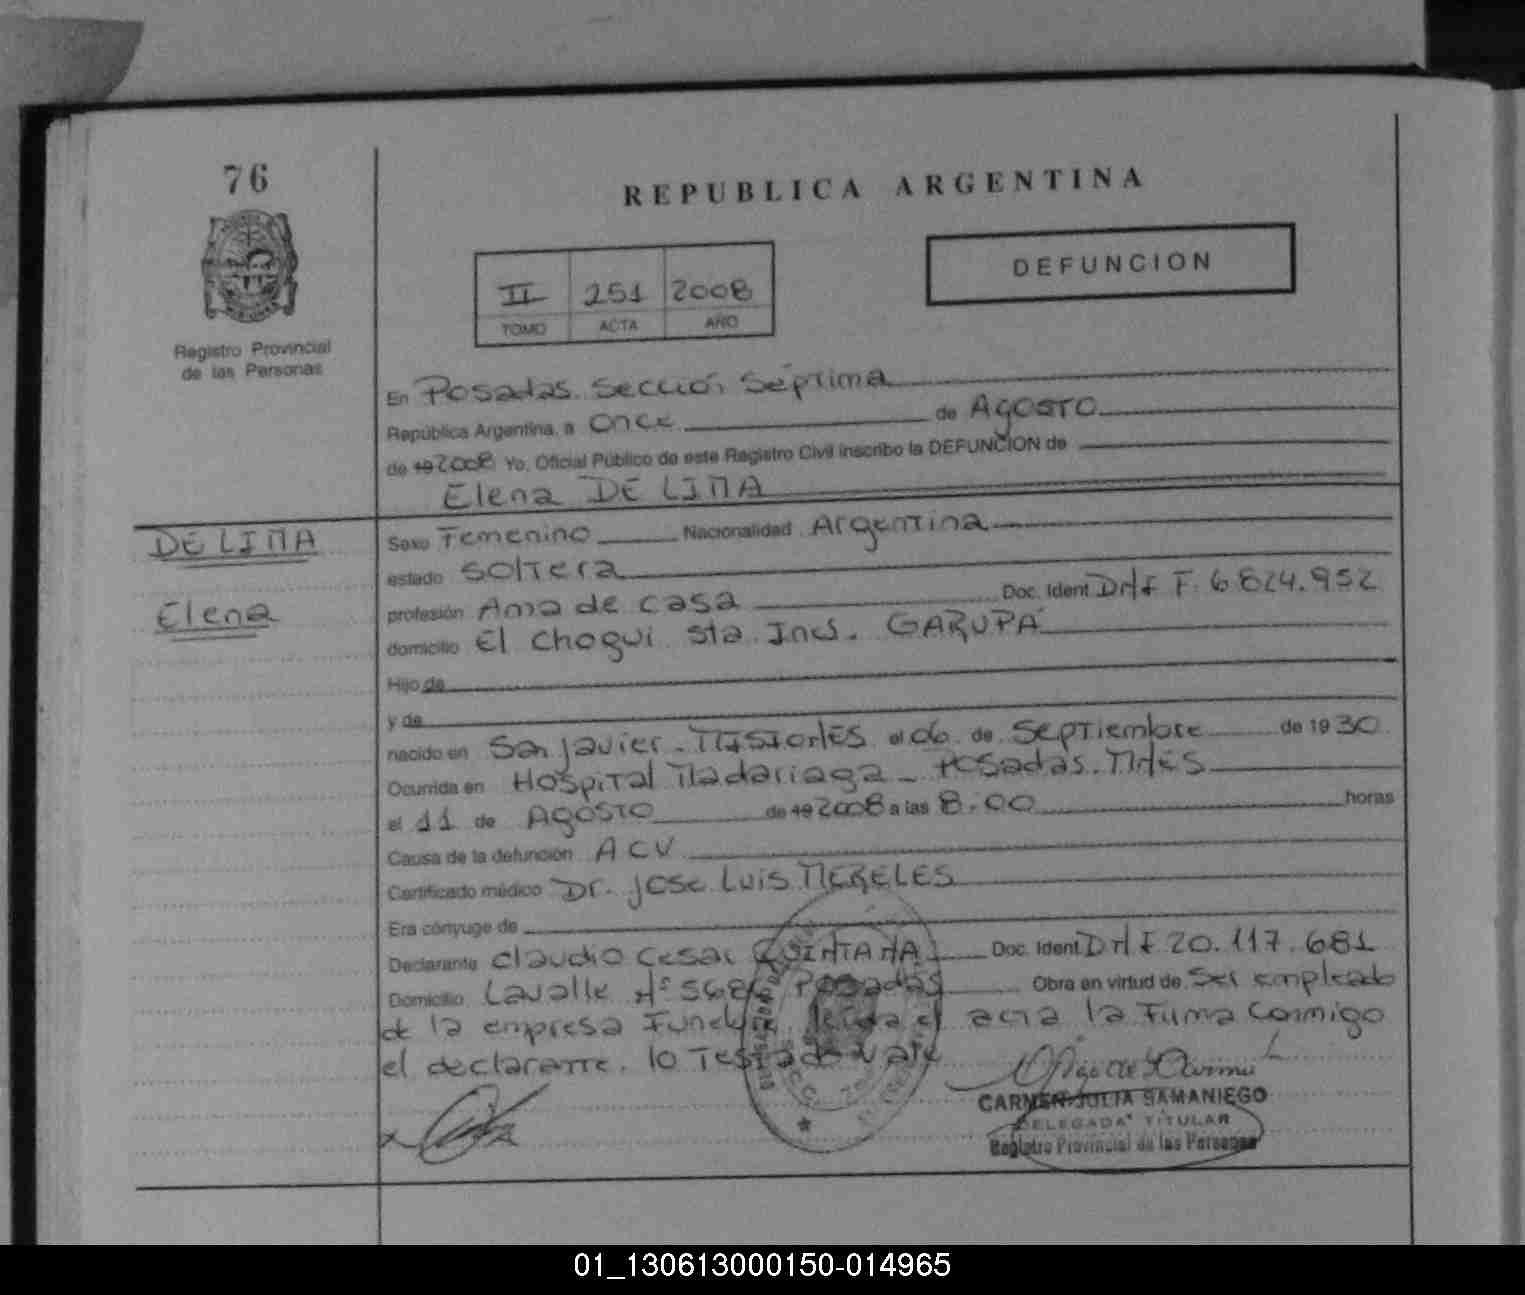 76
REPUBLICA ARGENTINA
DEFUNCION
II 251 2008
TOMO ACTA AÑO
Registro Provincial
de las Personas
En Posadas. Sección Séptima
República Argentina, a Once de Agosto
de 19 2008 Yo, Oficial Público de este Registro Civil inscribo la DEFUNCION de
Elena DE LIMA
DE LIMA
Elena
Sexo Femenino Nacionalidad Argentina
estado Soltera
profesión Ama de casa Doc. Ident DNI F. 6.824.952
domicilio El Chogui Sta Ines. GARUPÁ
Hijo de
y de
nacido en San Javier - Misiones el 06 de Septiembre de 1930
Ocurrida en Hospital Madariaga - Posadas. Mnes
el 11 de Agosto de 19 2008 a las 8.00 horas
Causa de la defunción ACV
Certificado médico Dr. Jose Luis MERELES
Era cónyuge de
Declarante Claudio Cesar QUINTANA Doc. Ident DNI 20.117.681
Domicilio Lavalle Nº 5686 Posadas Obra en virtud de Ser empleado
de la empresa Funebre leida el acta la Firma Conmigo
el declarante. lo Testado vale
CARMEN JULIA SAMANIEGO
DELEGADA TITULAR
Registro Provincial de las Personas
01_130613000150-014965